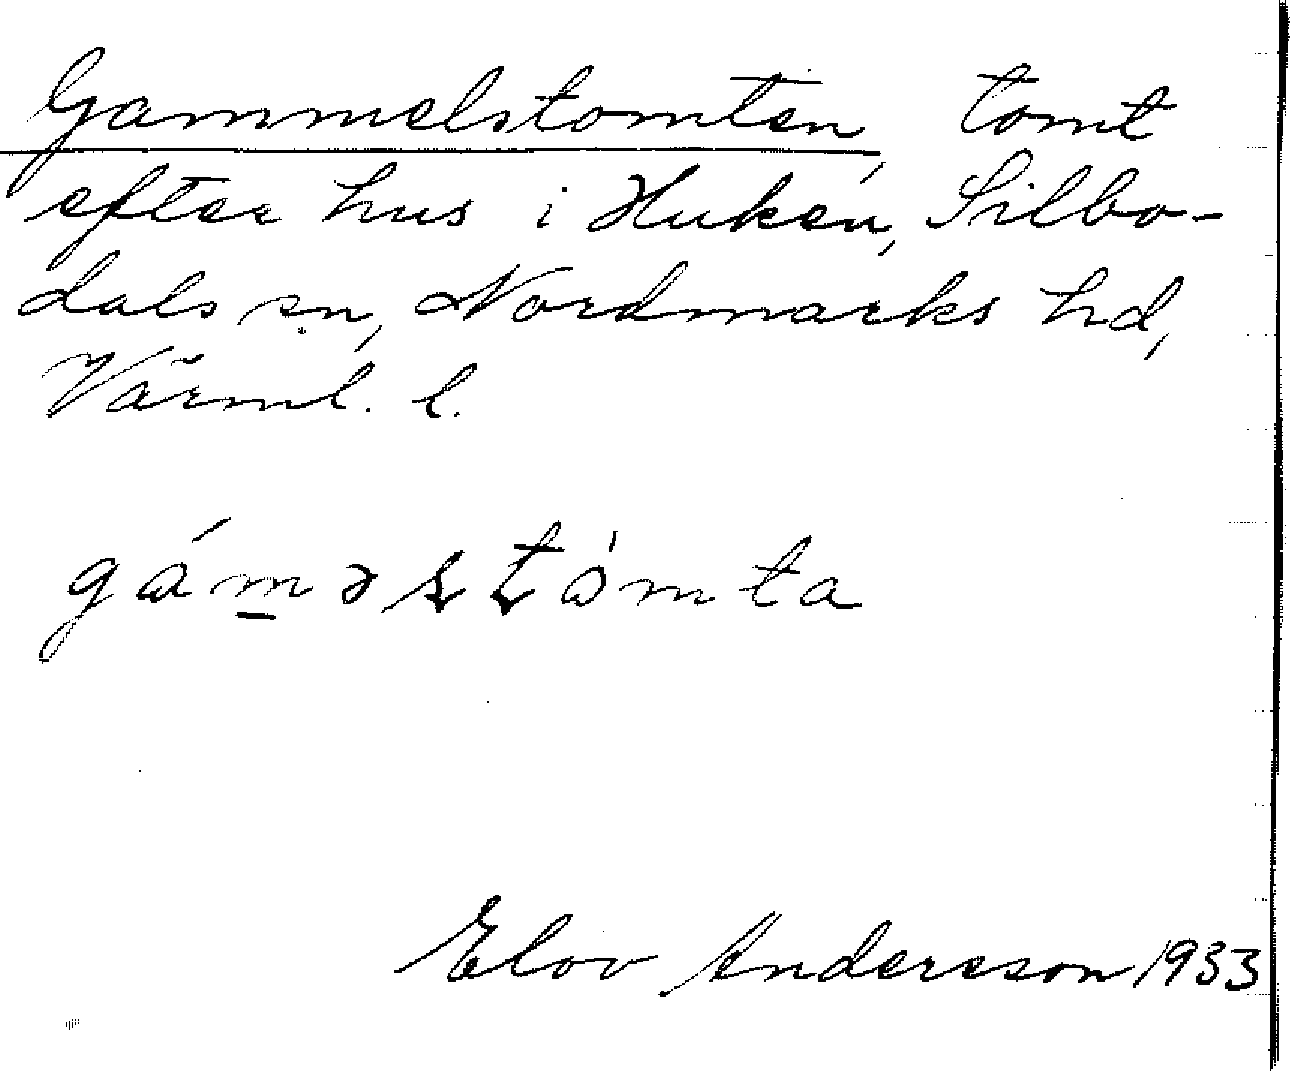 Gammelstomten, tomt
efter hus i Huken, Silbo-
dals sn, Nordmarks hd,
Värml. l.
gáməstómta
Elov Andersson 1933